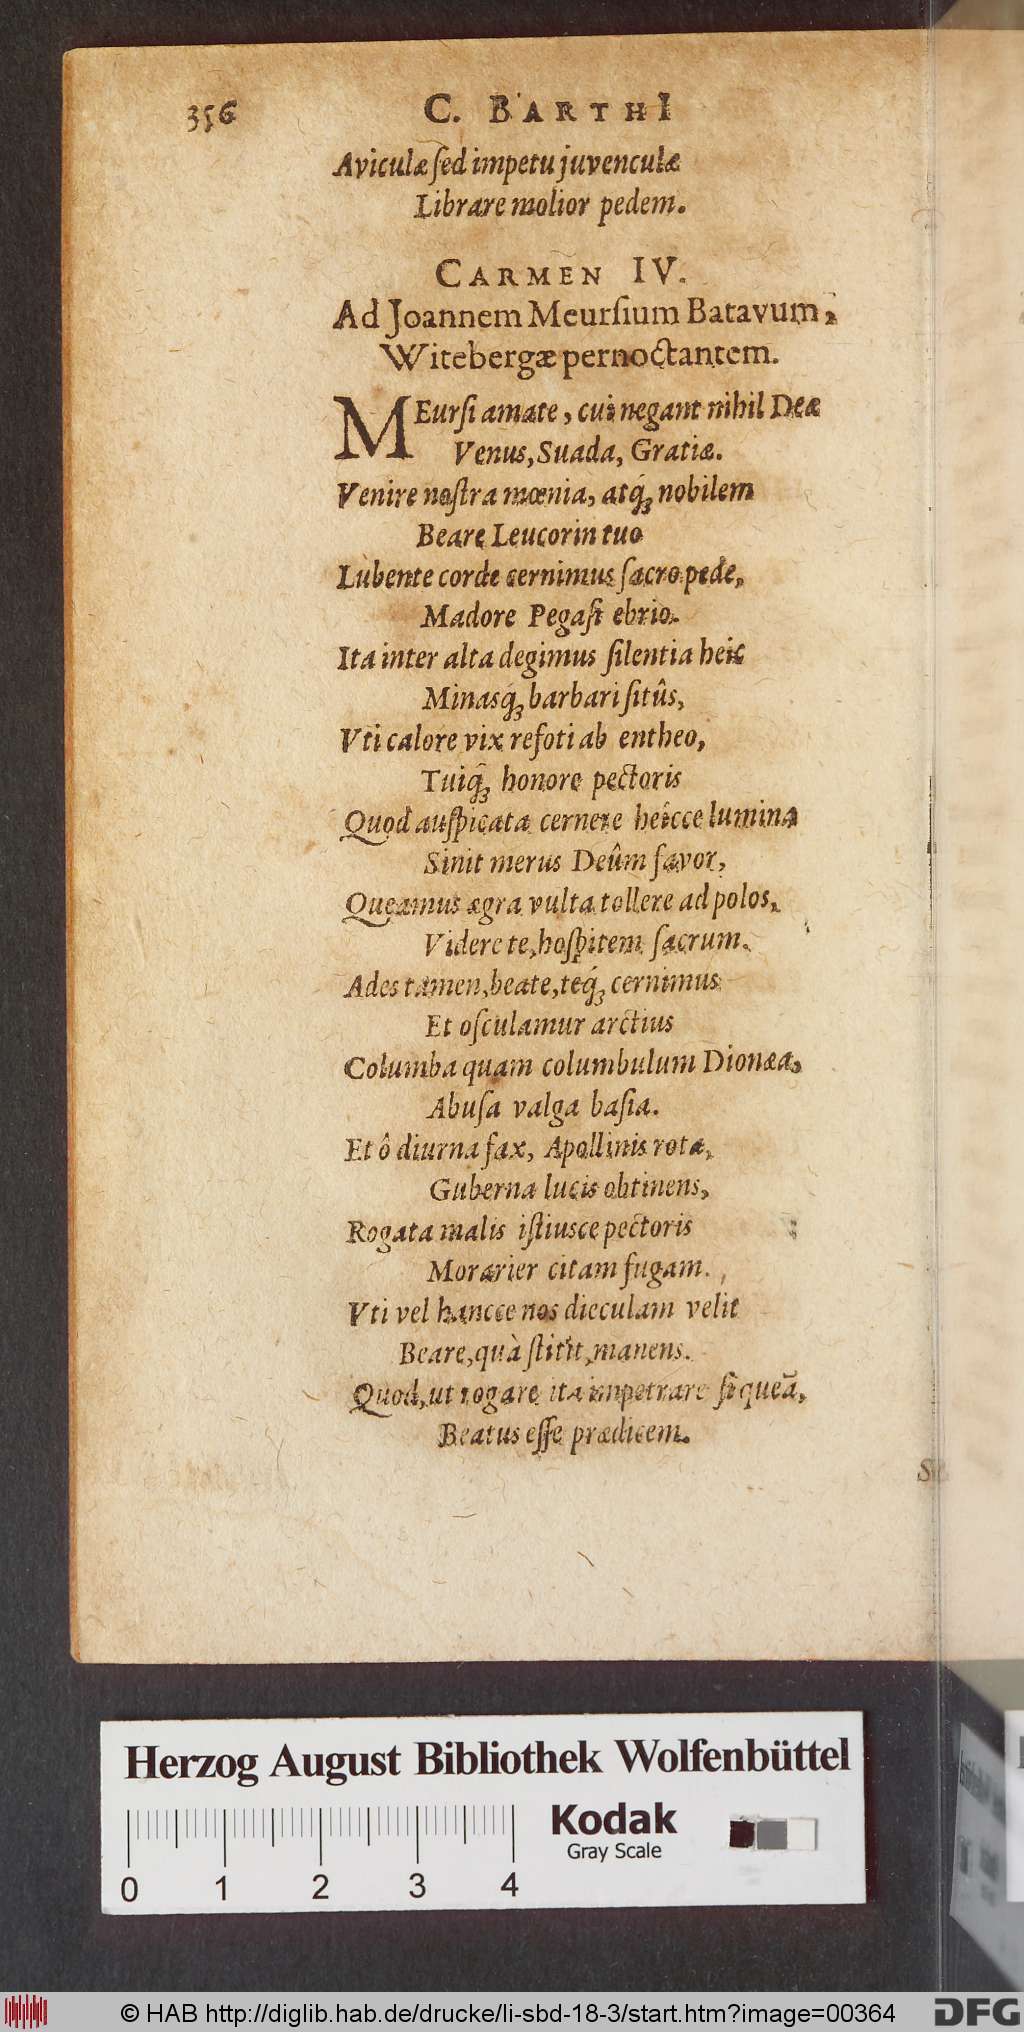 356 C. BARTHI
Aviculæ ſed impetu juvenculæ
Librare molior pedem.
CARMEN IV.
Ad Joannem Meurſium Batavum,
Witebergæ pernoctantem.
MEurſi amate, cui negant nihil Deæ
Venus, Suada, Gratiæ.
Venire noſtra mœnia, atq́ꝫ nobilem
Beare Leucorin tuo
Lubente corde cernimus ſacro pede,
Madore Pegaſi ebrio.
Ita inter alta degimus ſilentia heic
Minasq́ꝫ barbari ſitûs,
Vti calore vix refoti ab entheo,
Tuiq́ꝫ honore pectoris
Quod auſpicata cernere heicce lumina
Sinit merus Deûm favor,
Queamus ægra vulta tollere ad polos,
Videre te, hoſpitem ſacrum.
Ades tamen, beate, teq́ꝫ cernimus
Et oſculamur arctius
Columba quam columbulum Dionæa,
Abuſa valga baſia.
Et ô diurna fax, Apollinis rota,
Guberna lucis obtinens,
Rogata malis iſtiusce pectoris
Morarier citam fugam.
Vti vel hancce nos dieculam velit
Beare, quà ſtitit, manens.
Quod, ut rogare ita impetrare ſi queā,
Beatus eſſe prædicem.
Herzog August Bibliothek Wolfenbüttel
0 1 2 3 4
Kodak
Gray Scale
© HAB http://diglib.hab.de/drucke/li-sbd-18-3/start.htm?image=00364 DFG